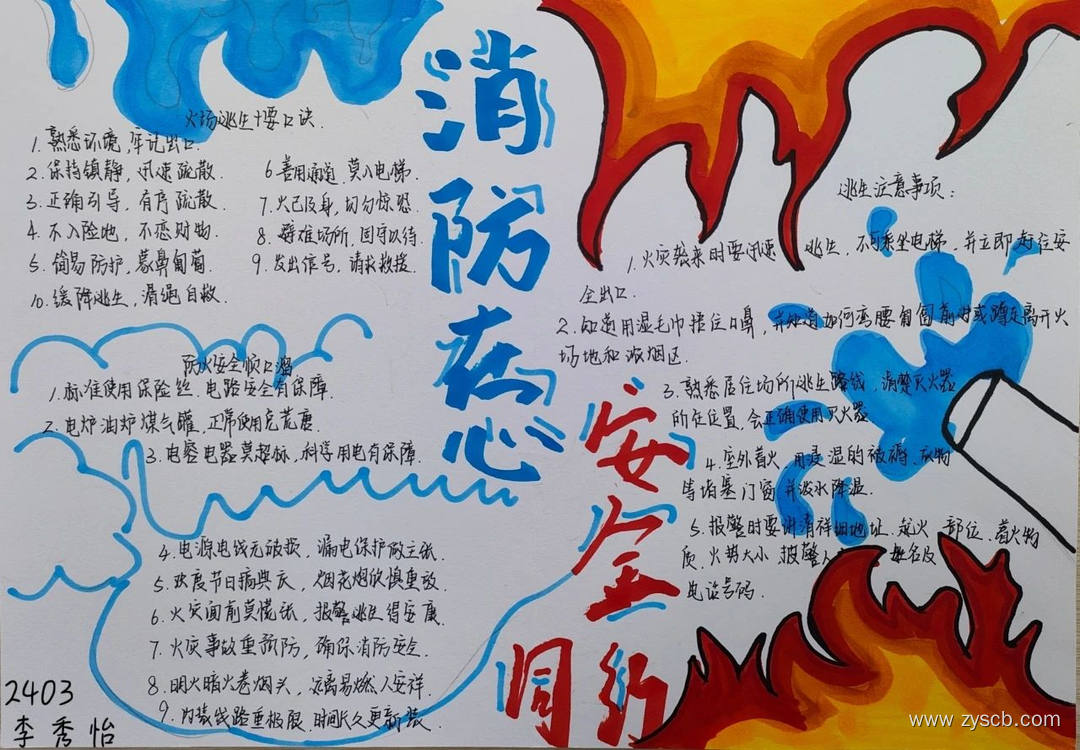 消防在心
安全同行
火场逃生十要口诀.
1. 熟悉环境,牢记出口.
2. 保持镇静,迅速疏散.
3. 正确引导,有序疏散.
4. 不入险地,不恋财物.
5. 简易防护,蒙鼻匍匐.
6 善用通道,莫入电梯.
7. 火已及身,切勿惊恐.
8. 避难场所,固守以待.
9. 发出信号,请求救援.
10. 缓降逃生,滑绳自救.
防火安全顺口溜
1. 标准使用保险丝,电路安全有保障.
2. 电炉油炉煤气罐,正常使用
3. 电容电器莫超标,科学用电有保障.
4. 电源电线无破损,漏电保护做主张.
5. 欢度节日搞典庆,烟花炮仗慎重放.
6. 火灾面前莫慌张,报警逃生得安康.
7. 火灾事故重预防,确保消防安全.
8. 明火暗火卷烟头,远离易燃人安祥.
9. 内装线路重极限,时间长久更新装.
逃生注意事项:
1. 火灾袭来时要迅速 逃生,不可乘坐电梯,并立即 安
全出口.
2. 知道用湿毛巾捂住口鼻,并知道如何弯腰匍匐前进或蹲走离开火
场地和浓烟区.
3. 熟悉居住场所逃生路线,消楚灭火器
所在位置,会正确使用灭火器
4. 室外着火,用浸湿的被褥、衣物
等堵塞门窗并泼水降温.
5. 报警时要讲清祥细地址、起火 部位、着火物
质、火势大小、报警人 姓名及
电话号码.
2403
李秀怡
www.zyscb.com